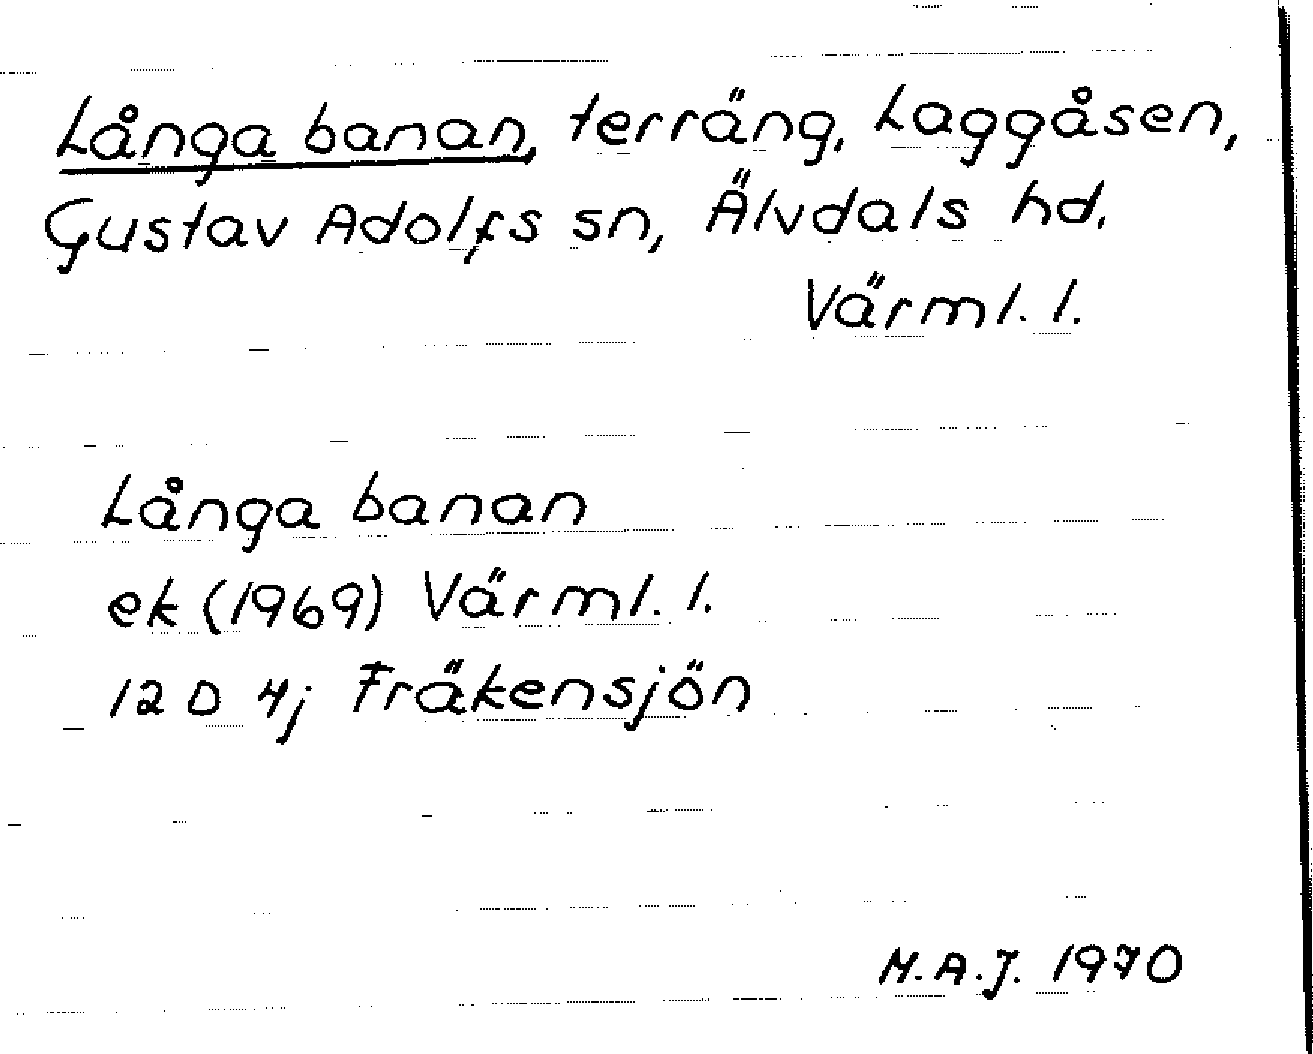 Långa banan, terräng, Laggåsen,
Gustav Adolfs sn, Älvdals hd.
Värml. l.
Långa banan
ek (1969) Värml. l.
12 D 4j Fräkensjön
M.A.J. 1970